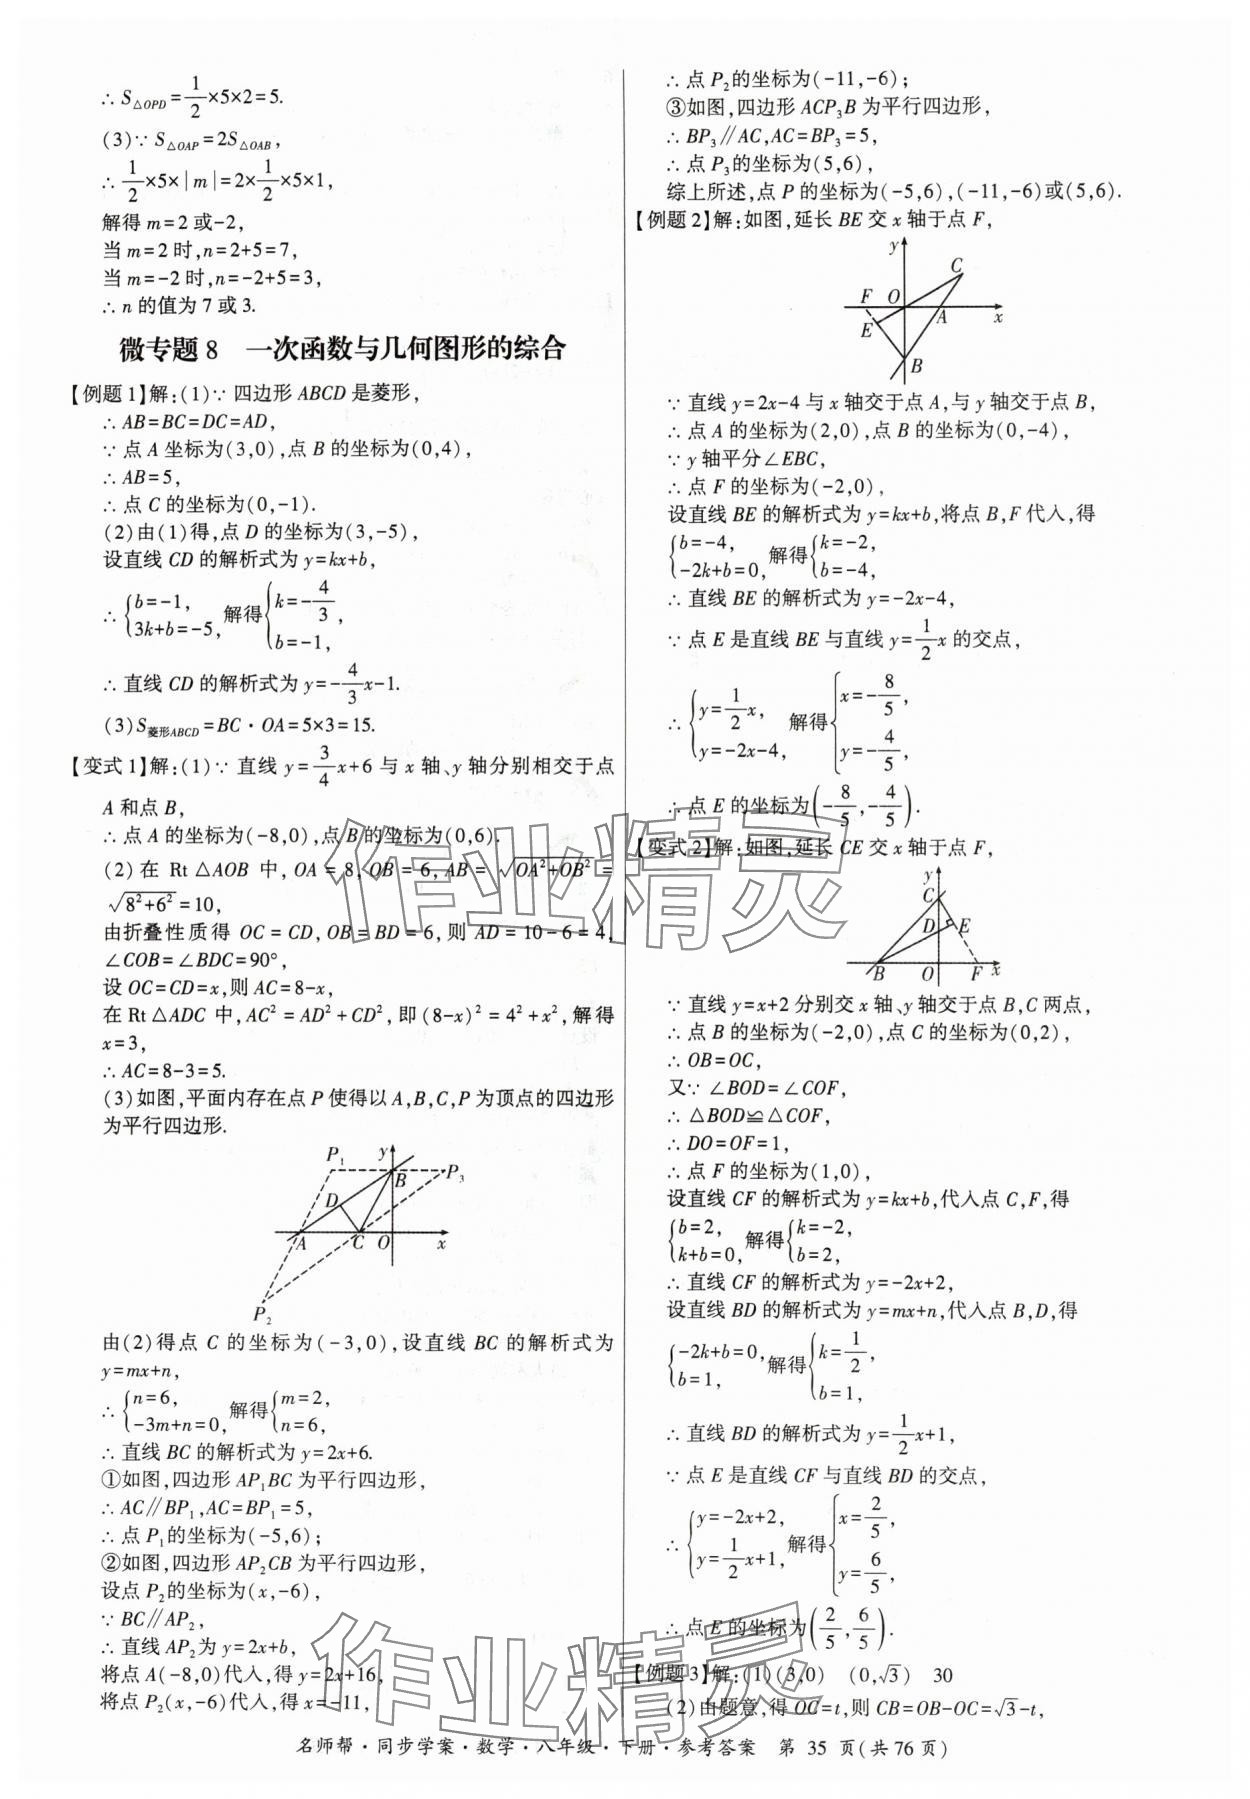 ∴ S△OPD=1/2×5×2=5.
(3)∵ S△OAP=2S△OAB,
∴ 1/2×5×|m|=2×1/2×5×1,
解得 m=2 或-2,
当 m=2 时,n=2+5=7,
当 m=-2 时,n=-2+5=3,
∴ n 的值为 7 或 3.
微专题 8 一次函数与几何图形的综合
【例题 1】解:(1)∵ 四边形 ABCD 是菱形,
∴ AB=BC=DC=AD,
∵ 点 A 坐标为(3,0),点 B 的坐标为(0,4),
∴ AB=5,
∴ 点 C 的坐标为(0,-1).
(2)由(1)得,点 D 的坐标为(3,-5),
设直线 CD 的解析式为 y=kx+b,
∴ {b=-1, 3k+b=-5, 解得 {k=-4/3, b=-1,
∴ 直线 CD 的解析式为 y=-4/3x-1.
(3)S菱形ABCD=BC·OA=5×3=15.
【变式 1】解:(1)∵ 直线 y=3/4x+6 与 x 轴、y 轴分别相交于点
A 和点 B,
∴ 点 A 的坐标为(-8,0),点 B 的坐标为(0,6).
(2)在 Rt△AOB 中,OA=8,OB=6,AB=√(OA²+OB²)=
√(8²+6²)=10,
由折叠性质得 OC=CD,OB=BD=6,则 AD=10-6=4,
∠COB=∠BDC=90°,
设 OC=CD=x,则 AC=8-x,
在 Rt△ADC 中,AC²=AD²+CD²,即(8-x)²=4²+x²,解得
x=3,
∴ AC=8-3=5.
(3)如图,平面内存在点 P 使得以 A,B,C,P 为顶点的四边形
为平行四边形.
P₁ y
B P₃
D
A C O x
P₂
由(2)得点 C 的坐标为(-3,0),设直线 BC 的解析式为
y=mx+n,
∴ {n=6, -3m+n=0, 解得 {m=2, n=6,
∴ 直线 BC 的解析式为 y=2x+6.
①如图,四边形 AP₁BC 为平行四边形,
∴ AC∥BP₁,AC=BP₁=5,
∴ 点 P₁的坐标为(-5,6);
②如图,四边形 AP₂CB 为平行四边形,
设点 P₂的坐标为(x,-6),
∵ BC∥AP₂,
∴ 直线 AP₂为 y=2x+b,
将点 A(-8,0)代入,得 y=2x+16,
将点 P₂(x,-6)代入,得 x=-11,
∴ 点 P₂的坐标为(-11,-6);
③如图,四边形 ACP₃B 为平行四边形,
∴ BP₃∥AC,AC=BP₃=5,
∴ 点 P₃的坐标为(5,6),
综上所述,点 P 的坐标为(-5,6),(-11,-6)或(5,6).
【例题 2】解:如图,延长 BE 交 x 轴于点 F,
y
C
F O
A x
E
B
∵ 直线 y=2x-4 与 x 轴交于点 A,与 y 轴交于点 B,
∴ 点 A 的坐标为(2,0),点 B 的坐标为(0,-4),
∵ y 轴平分∠EBC,
∴ 点 F 的坐标为(-2,0),
设直线 BE 的解析式为 y=kx+b,将点 B,F 代入,得
{b=-4, -2k+b=0, 解得 {k=-2, b=-4,
∴ 直线 BE 的解析式为 y=-2x-4,
∵ 点 E 是直线 BE 与直线 y=1/2x 的交点,
∴ {y=1/2x, y=-2x-4, 解得 {x=-8/5, y=-4/5,
∴ 点 E 的坐标为(-8/5,-4/5).
【变式 2】解:如图,延长 CE 交 x 轴于点 F,
y
C
D E
B O F x
∵ 直线 y=x+2 分别交 x 轴、y 轴交于点 B,C 两点,
∴ 点 B 的坐标为(-2,0),点 C 的坐标为(0,2),
∴ OB=OC,
又∵ ∠BOD=∠COF,
∴ △BOD≌△COF,
∴ DO=OF=1,
∴ 点 F 的坐标为(1,0),
设直线 CF 的解析式为 y=kx+b,代入点 C,F,得
{b=2, k+b=0, 解得 {k=-2, b=2,
∴ 直线 CF 的解析式为 y=-2x+2,
设直线 BD 的解析式为 y=mx+n,代入点 B,D,得
{-2k+b=0, b=1, 解得 {k=1/2, b=1,
∴ 直线 BD 的解析式为 y=1/2x+1,
∵ 点 E 是直线 CF 与直线 BD 的交点,
∴ {y=-2x+2, y=1/2x+1, 解得 {x=2/5, y=6/5,
∴ 点 E 的坐标为(2/5,6/5).
【例题 3】解:(1)(3,0) (0,√3) 30
(2)由题意,得 OC=t,则 CB=OB-OC=√3-t,
名师帮·同步学案·数学·八年级·下册·参考答案 第 35 页(共 76 页)
作业精灵
作业精灵